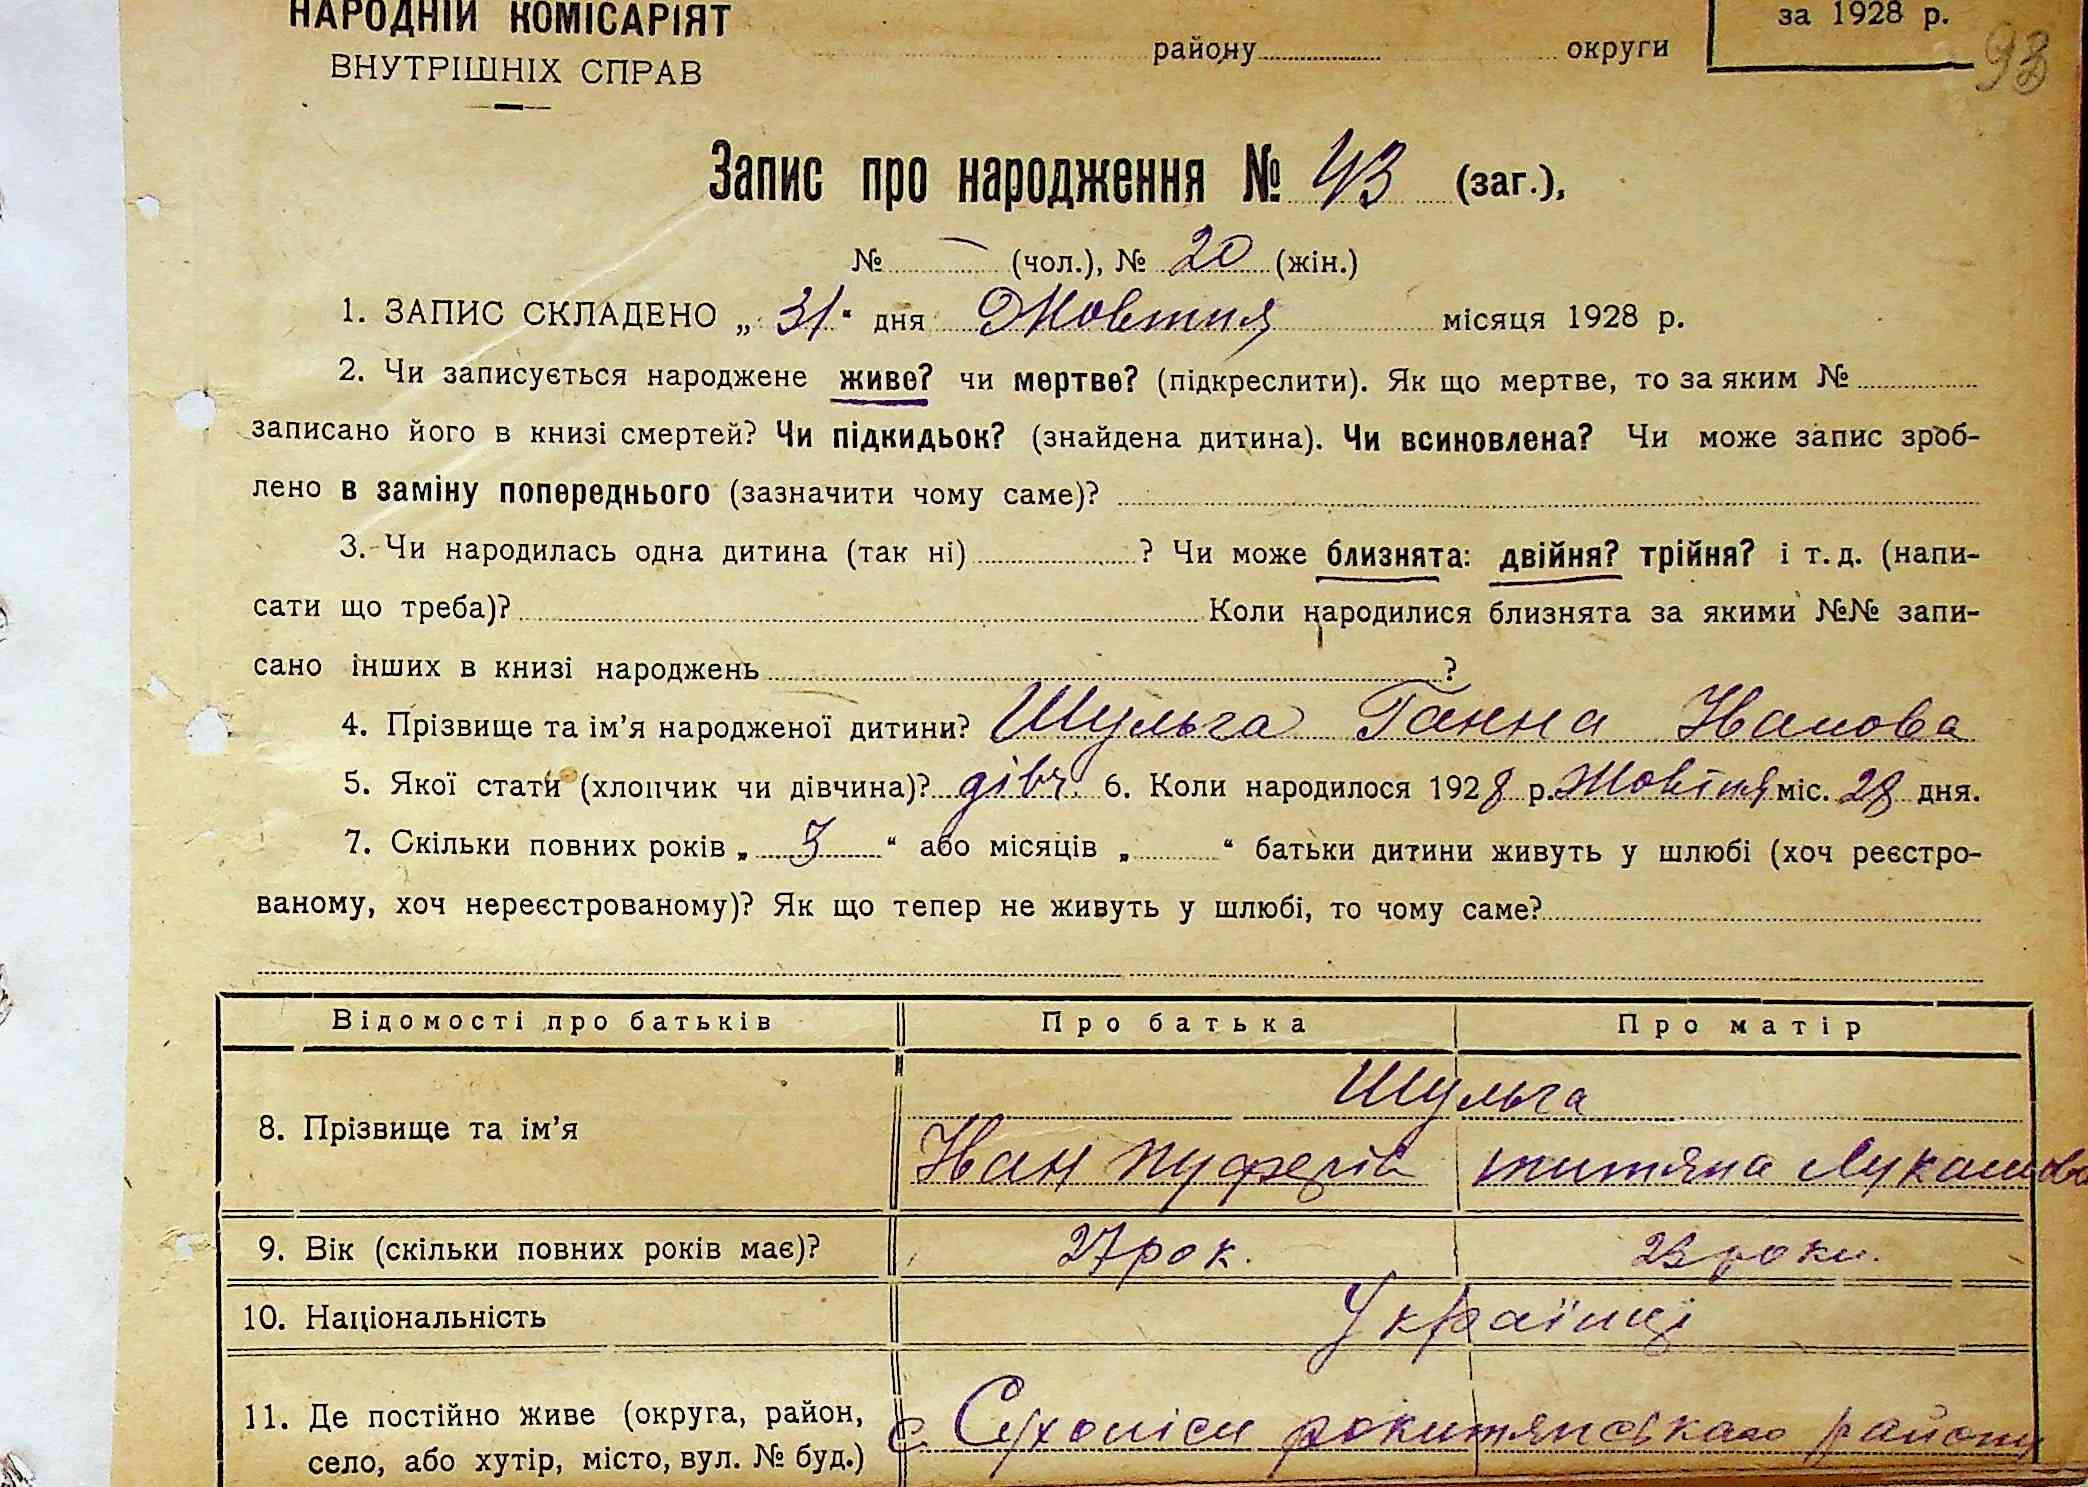 НАРОДНІЙ КОМІСАРІЯТ
ВНУТРІШНІХ СПРАВ
району округи
за 1928 р.
93
Запис про народження № 43 (заг.),
№ — (чол.), № 20 (жін.)
1. ЗАПИС СКЛАДЕНО „ 31 “ дня Жовтня місяця 1928 р.
2. Чи записується народжене живе? чи мертве? (підкреслити). Як що мертве, то за яким №
записано його в книзі смертей? Чи підкидьок? (знайдена дитина). Чи всиновлена? Чи може запис зроб-
лено в заміну попереднього (зазначити чому саме)?
3. Чи народилась одна дитина (так ні) ? Чи може близнята: двійня? трійня? і т. д. (напи-
сати що треба)? Коли народилися близнята за якими №№ запи-
сано інших в книзі народжень ?
4. Прізвище та ім’я народженої дитини? Шульга Ганна Іванова
5. Якої стати (хлопчик чи дівчина)? дівч. 6. Коли народилося 1928 р. Жовтня міс. 28 дня.
7. Скільки повних років „ “ або місяців „ “ батьки дитини живуть у шлюбі (хоч реєстро-
ваному, хоч нереєстрованому)? Як що тепер не живуть у шлюбі, то чому саме?
Відомості про батьків Про батька Про матір
8. Прізвище та ім’я Шульга
Іван титяна Лукашова
9. Вік (скільки повних років має)? 27 рок. роки.
10. Національність Українці
11. Де постійно живе (округа, район,
село, або хутір, місто, вул. № буд.)
с. Сухоліси рокитянського району